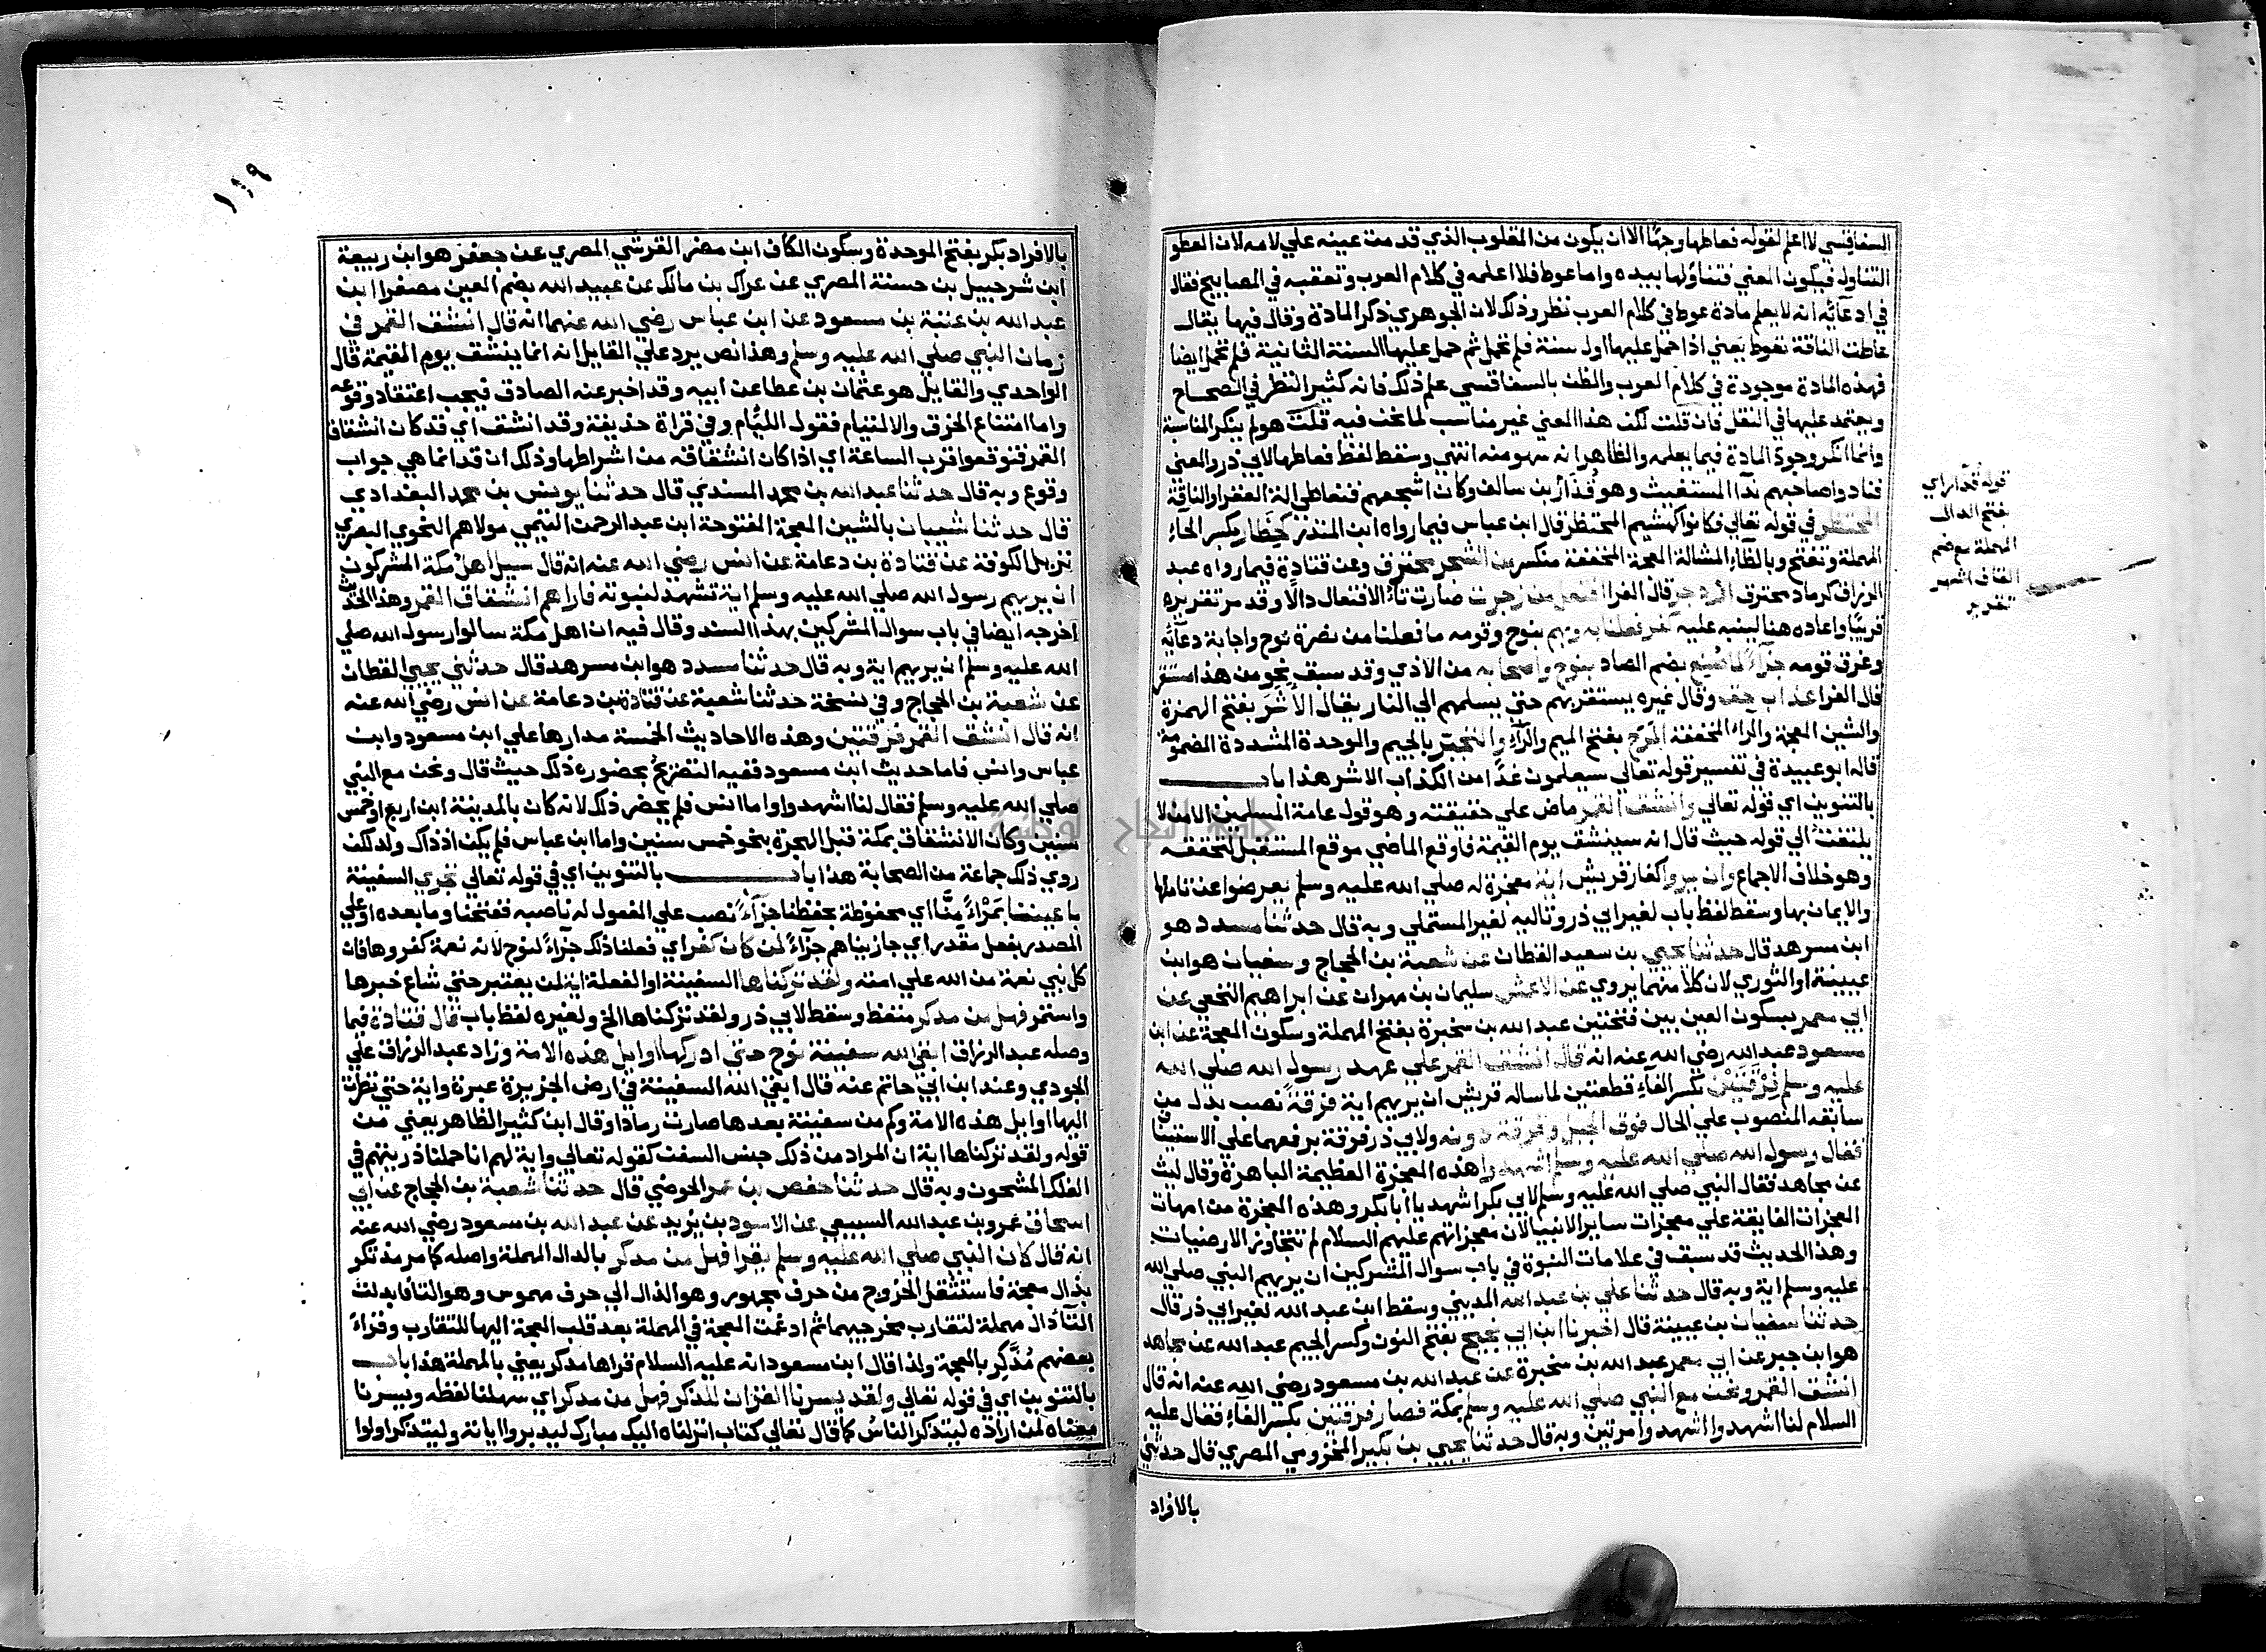 السفاقسي لا اعلم لقوله فعاطها وجها الا ان يكون من المقلوب الذي قدمت عينه علي لامه لان العطو
التناول فيكون المعني فتناولها بيده واما عوط فلا اعلمه في كلام العرب وتعقبه في المصابيح فقال
في ادعائه انه لا يعلم مادة عوط في كلام العرب نظر وذلك لان الجوهري ذكر المادة وقال فيها يقال
عاطت الناقة تعوط يعني اذا حمل عليها اول سنة فلم تحمل ثم حمل عليها السنة الثانية فلم تحمل ايضا
فهذه المادة موجودة في كلام العرب والظن بالسفاقسي علم ذلك فانه كثير النظر في الصحاح
ويعتمد عليها في النقل فان قلت لكن هذا المعني غير مناسب لما نحن فيه قلت هو لم ينكر المناسبة
وانما انكر وجود المادة فيما يعلمه والظاهر انه سهو منه انتهي وسقط لفظ فعاطها لابي ذر والمعني
فنادوا صاحبهم ندآ المستغيث وهو قدار بن سالف وكان اشجعهم فتعاطي الة العقر او الناقة
المحتظر في قوله تعالي فكانوا كهشيم المحتظر قال ابن عباس فيما رواه ابن المنذر كحظار بكسر الحاء
المهملة وتفتح وبالظاء المشالة المعجمة المخففة منكسر من الشجر محترق وعن قتادة فيما رواه عبد
الرزاق كرماد محترق ازدجر قال الفرا افتعل من زجرت صارت تاء الافتعال دالا وقد مر تقريره
قريبا واعاده هنا لينبه عليه كفر فعلنا به وبهم بنوح وقومه ما فعلنا من نصرة نوح واجابة دعائه
وغرق قومه جزآء لما صنع بضم الصاد بنوح واصحابه من الاذي وقد سبق نحو من هذا مستقر
قال الفرا عذاب حق وقال غيره يستقر بهم حتي يسلمهم الي النار يقال الاشر بفتح الهمزة
والشين المعجمة والراء المخففة المرح بفتح الميم والرآء والتجبر بالجيم والموحدة المشددة المضمومة
قاله ابو عبيدة في تفسير قوله تعالي سيعلمون غدا من الكذاب الاشر هذا باب
بالتنوين اي قوله تعالي وانشق القمر ماض علي حقيقته وهو قول عامة المسلمين الا من لا
يلتفت الي قوله حيث قال انه سينشق يوم القيمة فاوقع الماضي موقع المستقبل لتحققه
وهو خلاف الاجماع وان يروا كفار قريش اية معجزة له صلي الله عليه وسلم يعرضوا عن تاملها
والايمان بها وسقط لفظ باب لغير ابي ذر وتاليه لغير المستملي وبه قال حدثنا مسدد هو
ابن مسرهد قال حدثنا يحيي بن سعيد القطان عن شعبة بن الحجاج وسفيان هو ابن
عيينة او الثوري لان كلا منهما يروي عن الاعمش سليمان بن مهران عن ابراهيم النخعي عن
ابي معمر بسكون العين بين فتحتين عبد الله بن سخبرة بفتح المهملة وسكون المعجمة عن ابن
مسعود عبد الله رضي الله عنه انه قال انشق القمر علي عهد رسول الله صلي الله
عليه وسلم فرقتين بكسر الفاء قطعتين لما ساله قريش ان يريهم اية فرقة نصب بدل من
سابقه المنصوب علي الحال فوق الجبل وفرقة دونه ولابي ذر فرقة برفعهما علي الاستيناف
فقال رسول الله صلي الله عليه وسلم اشهدوا هذه المعجزة العظيمة الباهرة وقال ليث
عن مجاهد فقال النبي صلي الله عليه وسلم لابي بكر اشهد يا ابا بكر وهذه المعجزة من امهات
المعجزات الفايقة علي معجزات ساير الانبيا لان معجزاتهم عليهم السلام لم تتجاوز الارضيات
وهذا الحديث قد سبق في علامات النبوة في باب سوال المشركين ان يريهم النبي صلي الله
عليه وسلم اية وبه قال حدثنا علي بن عبد الله المديني وسقط ابن عبد الله لغير ابي ذر قال
حدثنا سفيان بن عيينة قال اخبرنا ابن ابي نجيح بفتح النون وكسر الجيم عبد الله عن مجاهد
هو ابن جبر عن ابي معمر عبد الله بن سخبرة عن عبد الله بن مسعود رضي الله عنه انه قال
انشق القمر ونحن مع النبي صلي الله عليه وسلم بمكة فصار فرقتين بكسر الفاء فقال عليه
السلام لنا اشهدوا اشهدوا مرتين وبه قال حدثنا يحيي بن بكير المخزومي المصري قال حدثني
بالافراد
قوله قدار اي
بفتح الدال
المهملة مع ضم
القاف اشهر
تقرير
١١٩
بالافراد بكر بفتح الموحدة وسكون الكاف ابن مضر القرشي المصري عن جعفر هو ابن ربيعة
ابن شرحبيل بن حسنة المصري عن عراك بن مالك عن عبيد الله بضم العين مصغرا ابن
عبد الله بن عتبة بن مسعود عن ابن عباس رضي الله عنهما انه قال انشق القمر في
زمان النبي صلي الله عليه وسلم وهذا نص يرد علي القايل انه انما ينشق يوم القيمة قال
الواحدي والقايل هو عثمان بن عطا عن ابيه وقد اخبر عنه الصادق فيجب اعتقاد وقوعه
واما امتناع الخرق والالتيام فقول الليام وفي قراة حذيفة وقد انشق اي قد كان انشقاق
القمر فتوقعوا قرب الساعة اي اذا كان انشقاقه من اشراطها وذلك ان قد انما هي جواب
وقوع وبه قال حدثنا عبد الله بن محمد المسندي قال حدثنا يونس بن محمد البغدادي
قال حدثنا شيبان بالشين المعجمة المفتوحة ابن عبد الرحمن التيمي مولاهم النحوي البصري
نزيل الكوفة عن قتادة بن دعامة عن انس رضي الله عنه انه قال سيل اهل مكة المشركون
ان يريهم رسول الله صلي الله عليه وسلم اية تشهد لنبوته فاراهم انشقاق القمر وهذا الحديث
اخرجه ايضا في باب سوال المشركين بهذا السند وقال فيه ان اهل مكة سالوا رسول الله صلي
الله عليه وسلم ان يريهم اية وبه قال حدثنا مسدد هو ابن مسرهد قال حدثني يحيي القطان
عن شعبة بن الحجاج وفي نسخة حدثنا شعبة عن قتادة بن دعامة عن انس رضي الله عنه
انه قال انشق القمر فرقتين وهذه الاحاديث الخمسة مدارها علي ابن مسعود وابن
عباس وانس فاما حديث ابن مسعود ففيه التصريح بحضوره ذلك حيث قال ونحن مع النبي
صلي الله عليه وسلم فقال لنا اشهدوا واما انس فلم يحضر ذلك لانه كان بالمدينة ابن اربع او خمس
سنين وكان الانشقاق بمكة قبل الهجرة بنحو خمس سنين واما ابن عباس فلم يكن اذ ذاك ولد لكن
روي ذلك جماعة من الصحابة هذا باب بالتنوين اي في قوله تعالي تجري السفينة
باعيننا بمرآء منا اي محفوظة بحفظنا جزآء نصب علي المفعول له ناصبه ففتحنا وما بعده او علي
المصدر بفعل مقدر اي جازيناهم جزآء لمن كان كفر اي فعلنا ذلك جزآء لنوح لانه نعمة كفروها فان
كل نبي نعمة من الله علي امته ولقد تركناها السفينة او الفعلة اية لمن يعتبر حتي شاع خبرها
واستمر فهل من مدكر متعظ وسقط لابي ذر ولقد تركناها الخ ولغيره لفظ باب قال قتادة فيما
وصله عبد الرزاق ابقي الله سفينة نوح حتي ادركها اوايل هذه الامة وزاد عبد الرزاق علي
الجودي وعند ابن ابي حاتم عنه قال ابقي الله السفينة في ارض الجزيرة عبرة واية حتي نظرت
اليها اوايل هذه الامة وكم من سفينة بعدها صارت رمادا وقال ابن كثير الظاهر يعني من
قوله ولقد تركناها اية ان المراد من ذلك جنس السفن كقوله تعالي واية لهم انا حملنا ذريتهم في
الفلك المشحون وبه قال حدثنا حفص بن عمر الحوضي قال حدثنا شعبة بن الحجاج عن ابي
اسحاق عمرو بن عبد الله السبيعي عن الاسود بن يزيد عن عبد الله بن مسعود رضي الله عنه
انه قال كان النبي صلي الله عليه وسلم يقرا فهل من مدكر بالدال المهملة واصله كما مر مذتكر
بذال معجمة فاستثقل الخروج من حرف مجهور وهو الذال الي حرف مهموس وهو التا فابدلت
التآ دال مهملة لتقارب مخرجيهما ثم ادغمت المعجمة في المهملة بعد قلب المعجمة اليها للتقارب وقراء
بعضهم مذكر بالمعجمة ولذا قال ابن مسعود انه عليه السلام قراها مدكر يعني بالمهملة هذا باب
بالتنوين اي في قوله تعالي ولقد يسرنا القران للذكر فهل من مدكر اي سهلنا لفظه ويسرنا
معناه لمن اراده ليتذكر الناس كما قال تعالي كتاب انزلناه اليك مبارك ليدبروا اياته وليتذكر اولوا